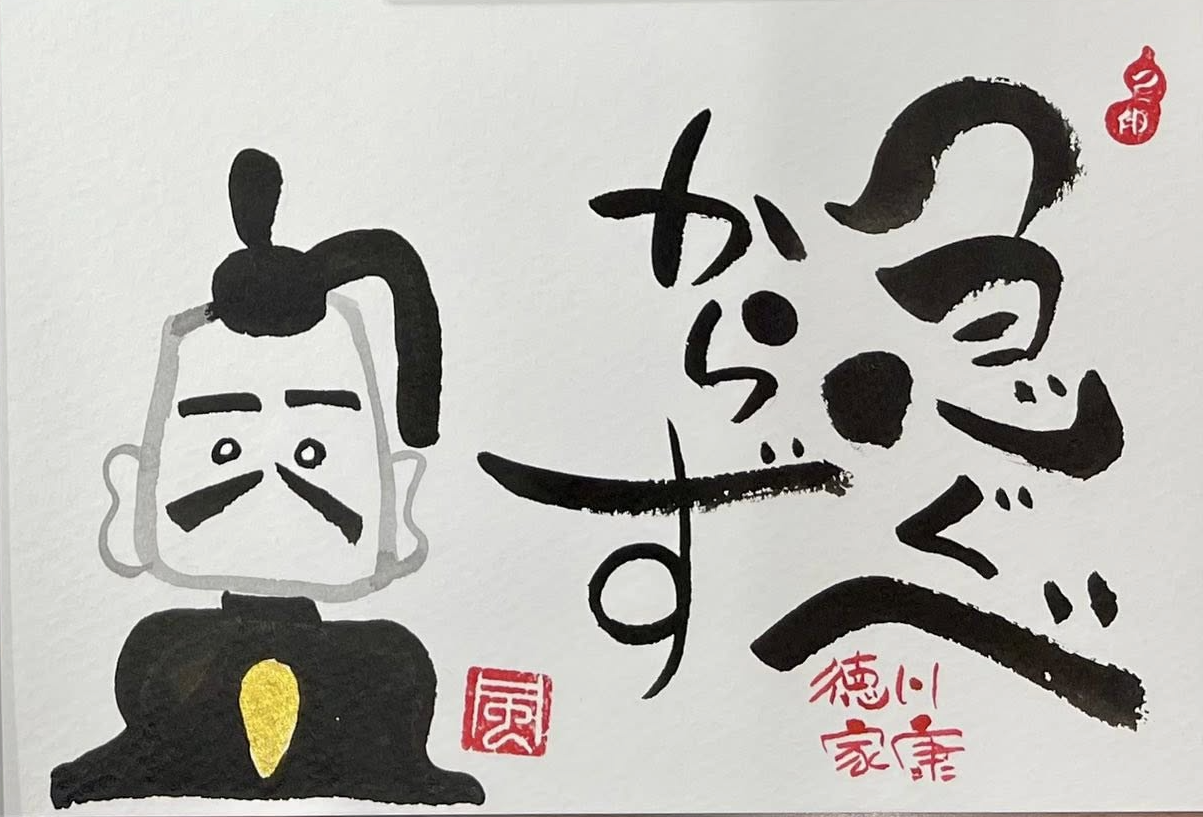 急ぐべ
からず
徳川
家康
風